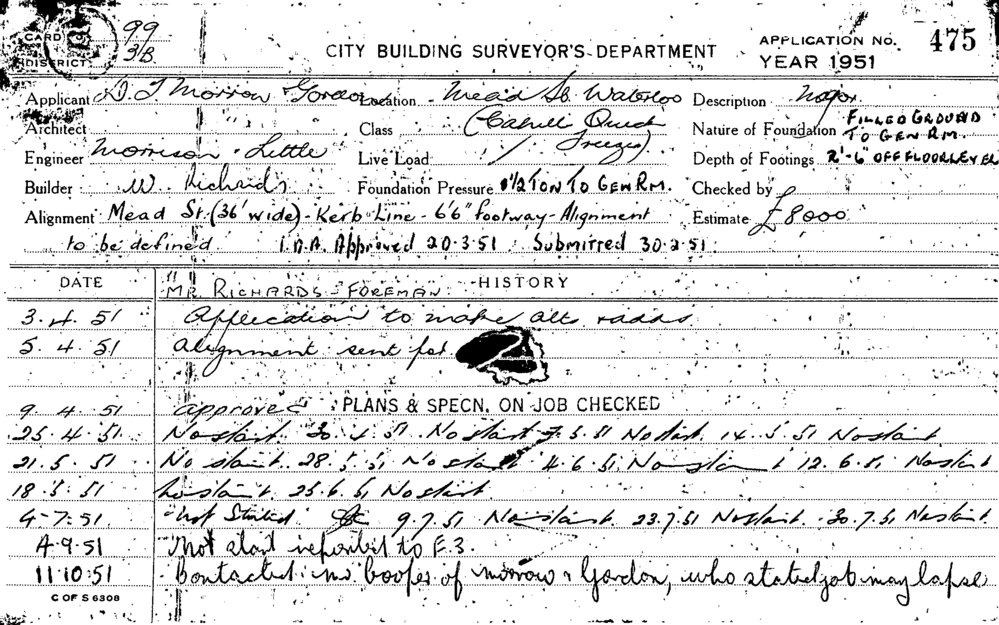 CARD 99
DISTRICT 3B
CITY BUILDING SURVEYOR'S DEPARTMENT
APPLICATION NO. 475
YEAR 1951
Applicant D. T. Morrow & Gordon Location Mead St. Waterloo Description Major
Architect Class (Cahill Quick Freezes) Nature of Foundation FILLED GROUND TO GEN RM.
Engineer Morrison & Little Live Load / Depth of Footings 2'-6" OFF FLOOR LEVEL
Builder W. Richards Foundation Pressure 1 1/2 TON TO GEN RM. Checked by
Alignment Mead St. (36' wide) - Kerb Line - 6'6" footway - Alignment Estimate £8000
to be defined. I.D.A. Approved 20.3.51 Submitted 30.2.51
DATE HISTORY
MR RICHARDS - FOREMAN
3.4.51 Application to make alts & adds
5.4.51 Alignment sent for
9.4.51 approved PLANS & SPECN. ON JOB CHECKED
25.4.51 No start 30.4.51 No start 7.5.51 No start 14.5.51 No start
21.5.51 No start 28.5.51 No start 4.6.51 No start 12.6.51 No start
18.5.51 No start 25.6.51 No start
4-7-51 Not Started 9.7.51 No start 23.7.51 No start 30.7.51 No start
4.9.51 Not start reported to E.3.
11.10.51 Contacted mr Cooper of Morrow & Gordon, who stated job may lapse
C OF S 6308